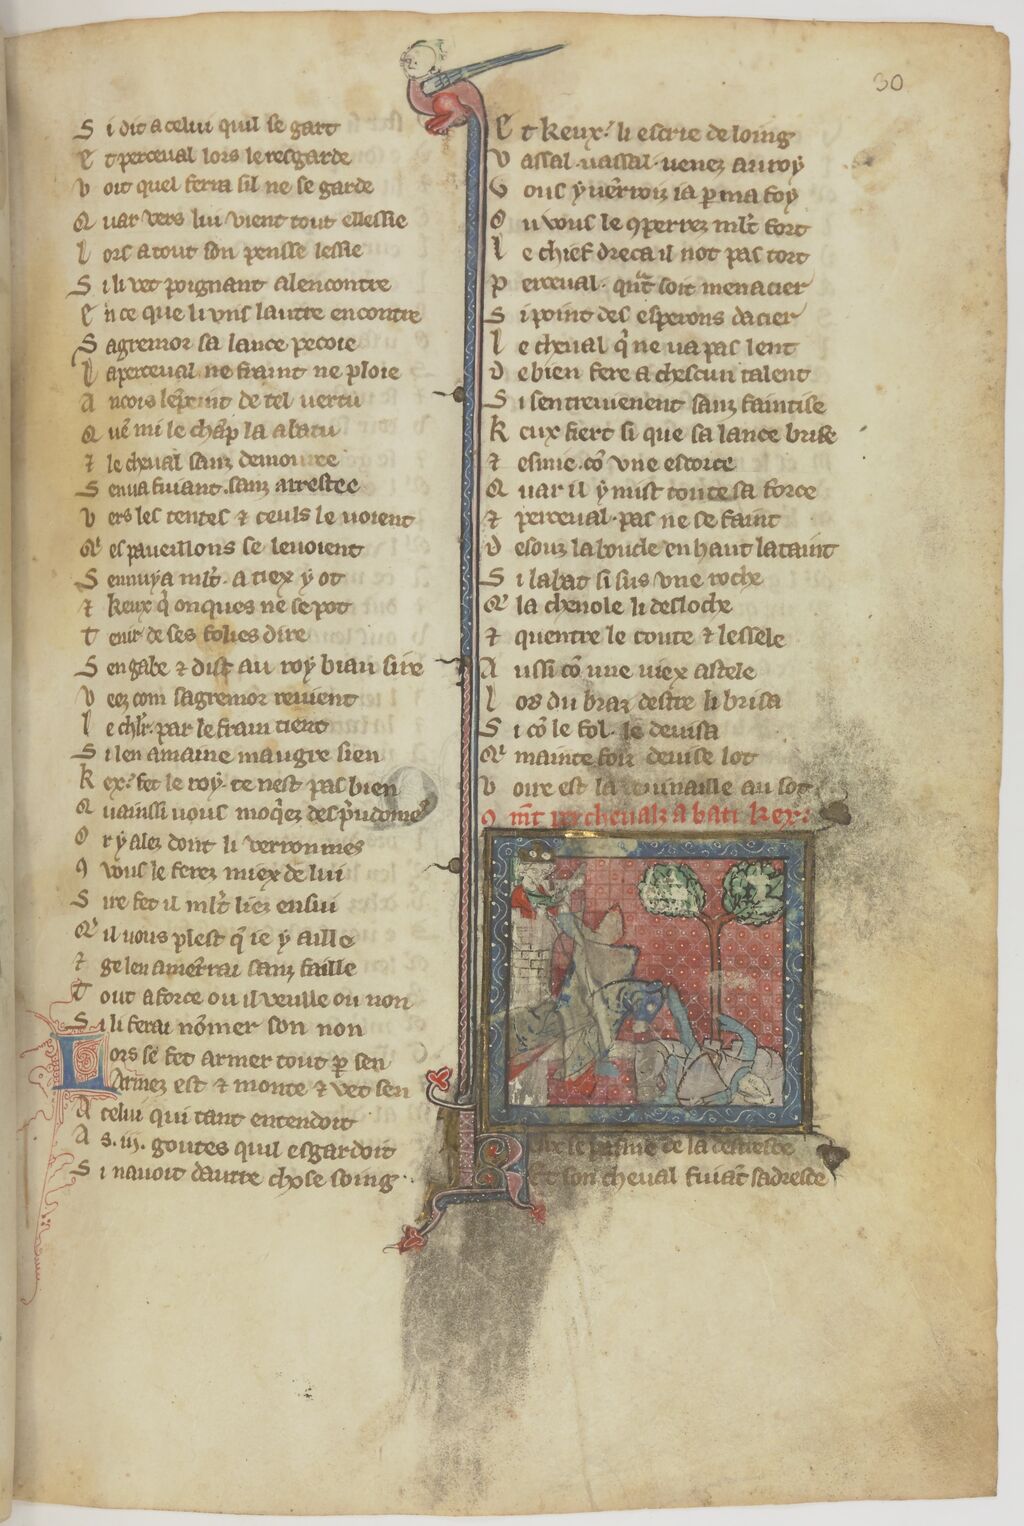 30
S i dit a celui quil se gart
E t perceual lors le resgarde
V oit quel ferra sil ne se garde
Q uar vers lui vient tout ellessie
L ors a tout son pensse lessie
S i li vet poignant alencontre
E n ce que li uns lautre encontre
S agremor sa lance pecoie
L aperceual ne fraint ne ploie
A ncois lepeint de tel uertu
Q ue mi le chāp la abatu
⁊ le cheual sanz demoure
S en ua fuiant sanz arrestee
V ers les tentes ⁊ ceuls le uoient
Qͥ es paueillons se leuoient
S ennuya ml̄t a tiex y ot
⁊ keux qͥ onques ne se pot
T enir de ses folies dire
S en gabe ⁊ dist au roy biau sire
V eez com sagremor reuient
L e chl̄r par le frain tient
S i len amaine maugre sien
K ex fet le roy ce nest pas bien
Q uainssi uous moqͥez des preudomes
O r y alez dont si verronmes
9 vous le ferez miex de lui
S ire fet il ml̄t liez en sui
Qͥ il uous plest q̄ ie y aille
⁊ ge len amerrai sanz faille
T out a force ou il veulle ou non
S i li ferai nōmer son non
L ors se fet armer tout p̄ sen
Armez est ⁊ monte ⁊ vet sen
A celui qui tant entendoit
A s .iii. goutes quil esgardoit
S i nauoit dautre chose soing
E t keux li escrie de loing
V assal uassal uenez au roy
V ous y uērrouz ia p̄ ma foy
O u vous le 9perrez ml̄t fort
L e chief dreca il not pas tort
P erceual qͣnt soit menacier
S i point des esperons dacier
L e cheual q̄ ne ua pas lent
D e bien fere a chescun talent
S i sentreuienent sanz faintise
K eux fiert si que sa lance brise
⁊ esmie cō vne escorce
Q uar il y mist toute sa force
⁊ perceual pas ne se faint
D esouz la boucle en haut lataint
S i labat si sus vne roche
Qͥ la chenole li desloche
⁊ quentre le coute ⁊ lessele
A ussi cō une viex astele
L os du braz destre li brisa
S i cō le fol le deuisa
Qͥ mainte foiz deuise lot
V oire est la deuinaille au sot
9 m̄t chevalr abati kex
Kex se pasme de la destresce
Et son cheual fuiāt sadresce